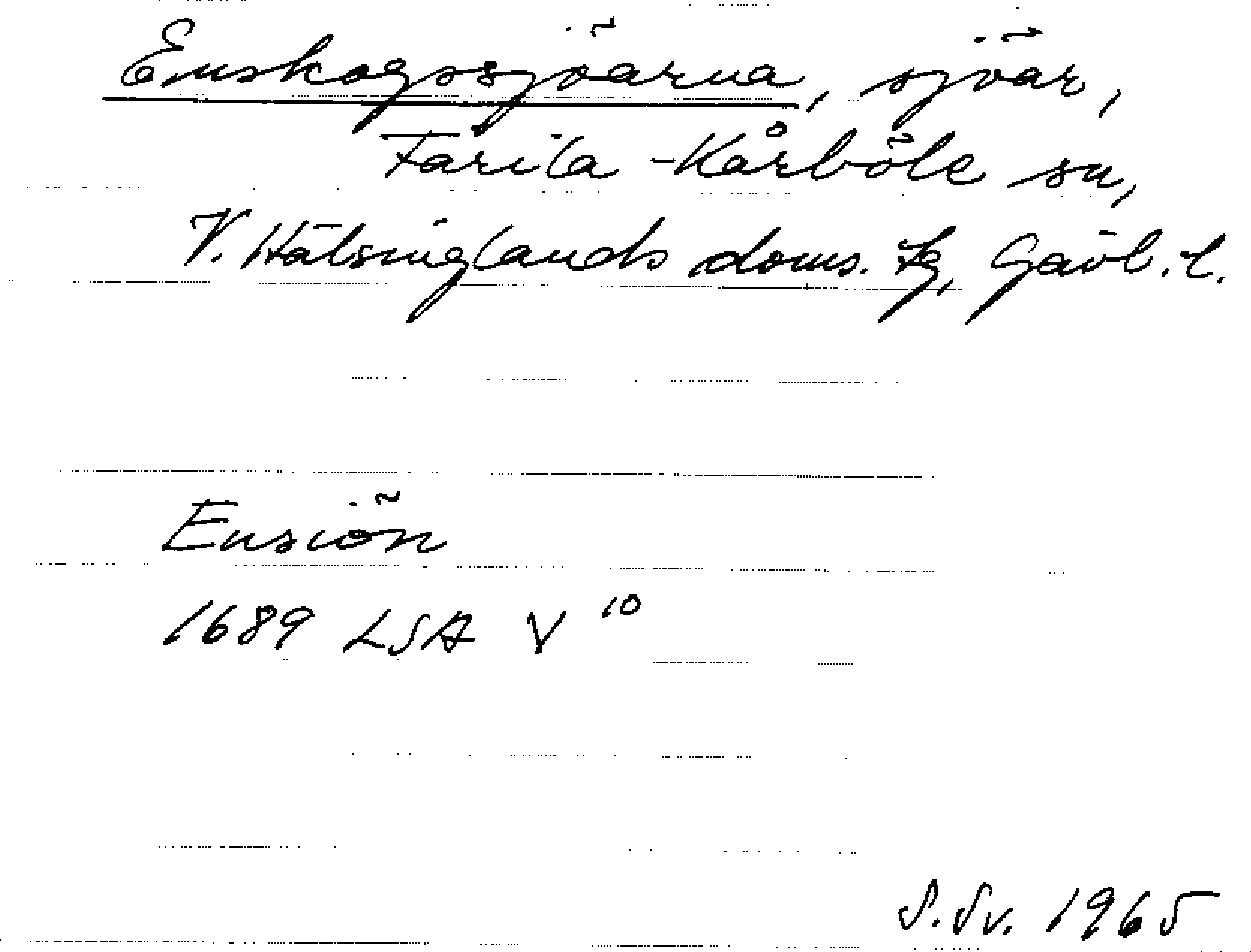 Enskogssjöarna, sjöar,
Färila-Kårböle sn,
V. Hälsinglands doms. tg, Gävl. l.
Ensiön
1689 LSA V 10
S. Sv. 1965